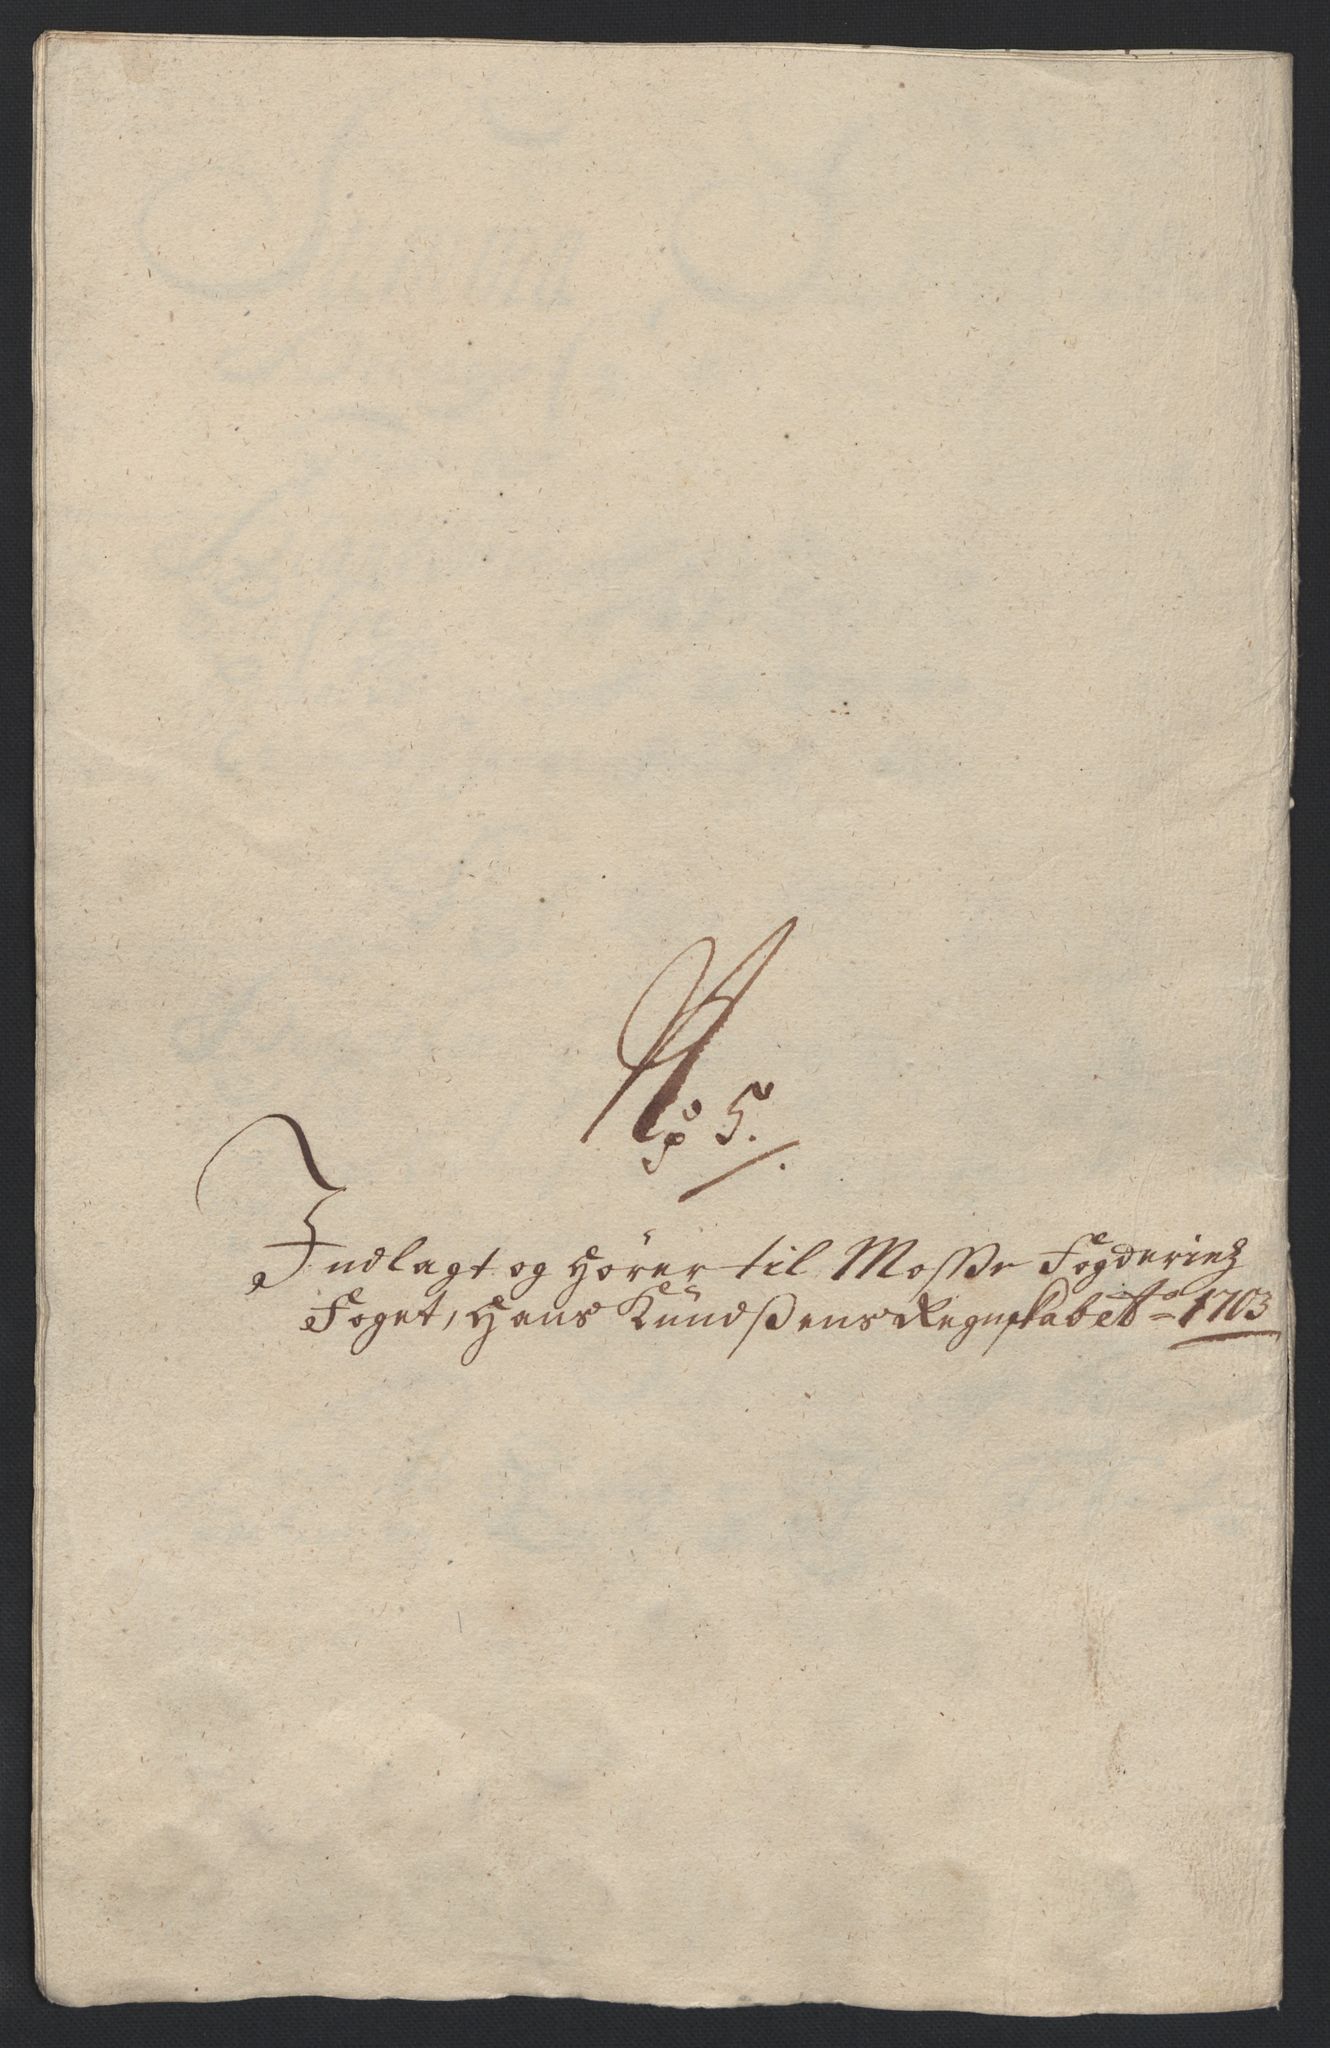 No 5.
Indlagt og hörer til Mosse Fogderies
Foget, Hans Kúndßens Regnskab A̅o 1703